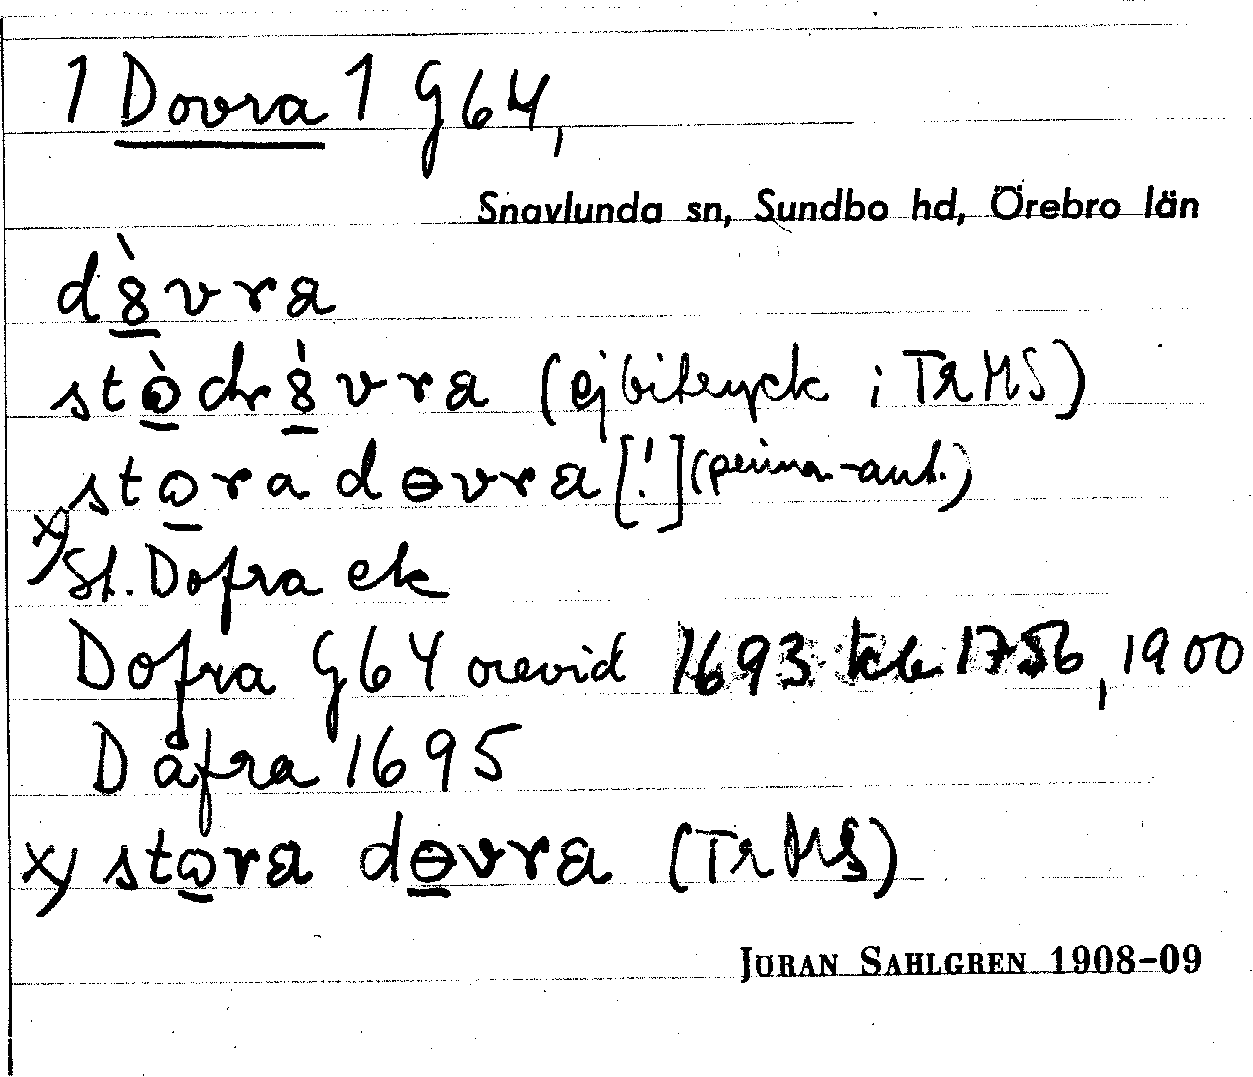 1 Dovra 1 G64,
Snavlunda sn, Sundbo hd, Örebro län
d8̀vra
stò̲dr8̀vra (ej bitryck i TRMS)
stora dɵvra [!] (penna-ant.)
x) St. Dofra ek
Dofra G64 orevid 1693 kb 1756, 1900
Dåfra 1695
x) stora dɵvra (TrMS)
JÖRAN SAHLGREN 1908–09